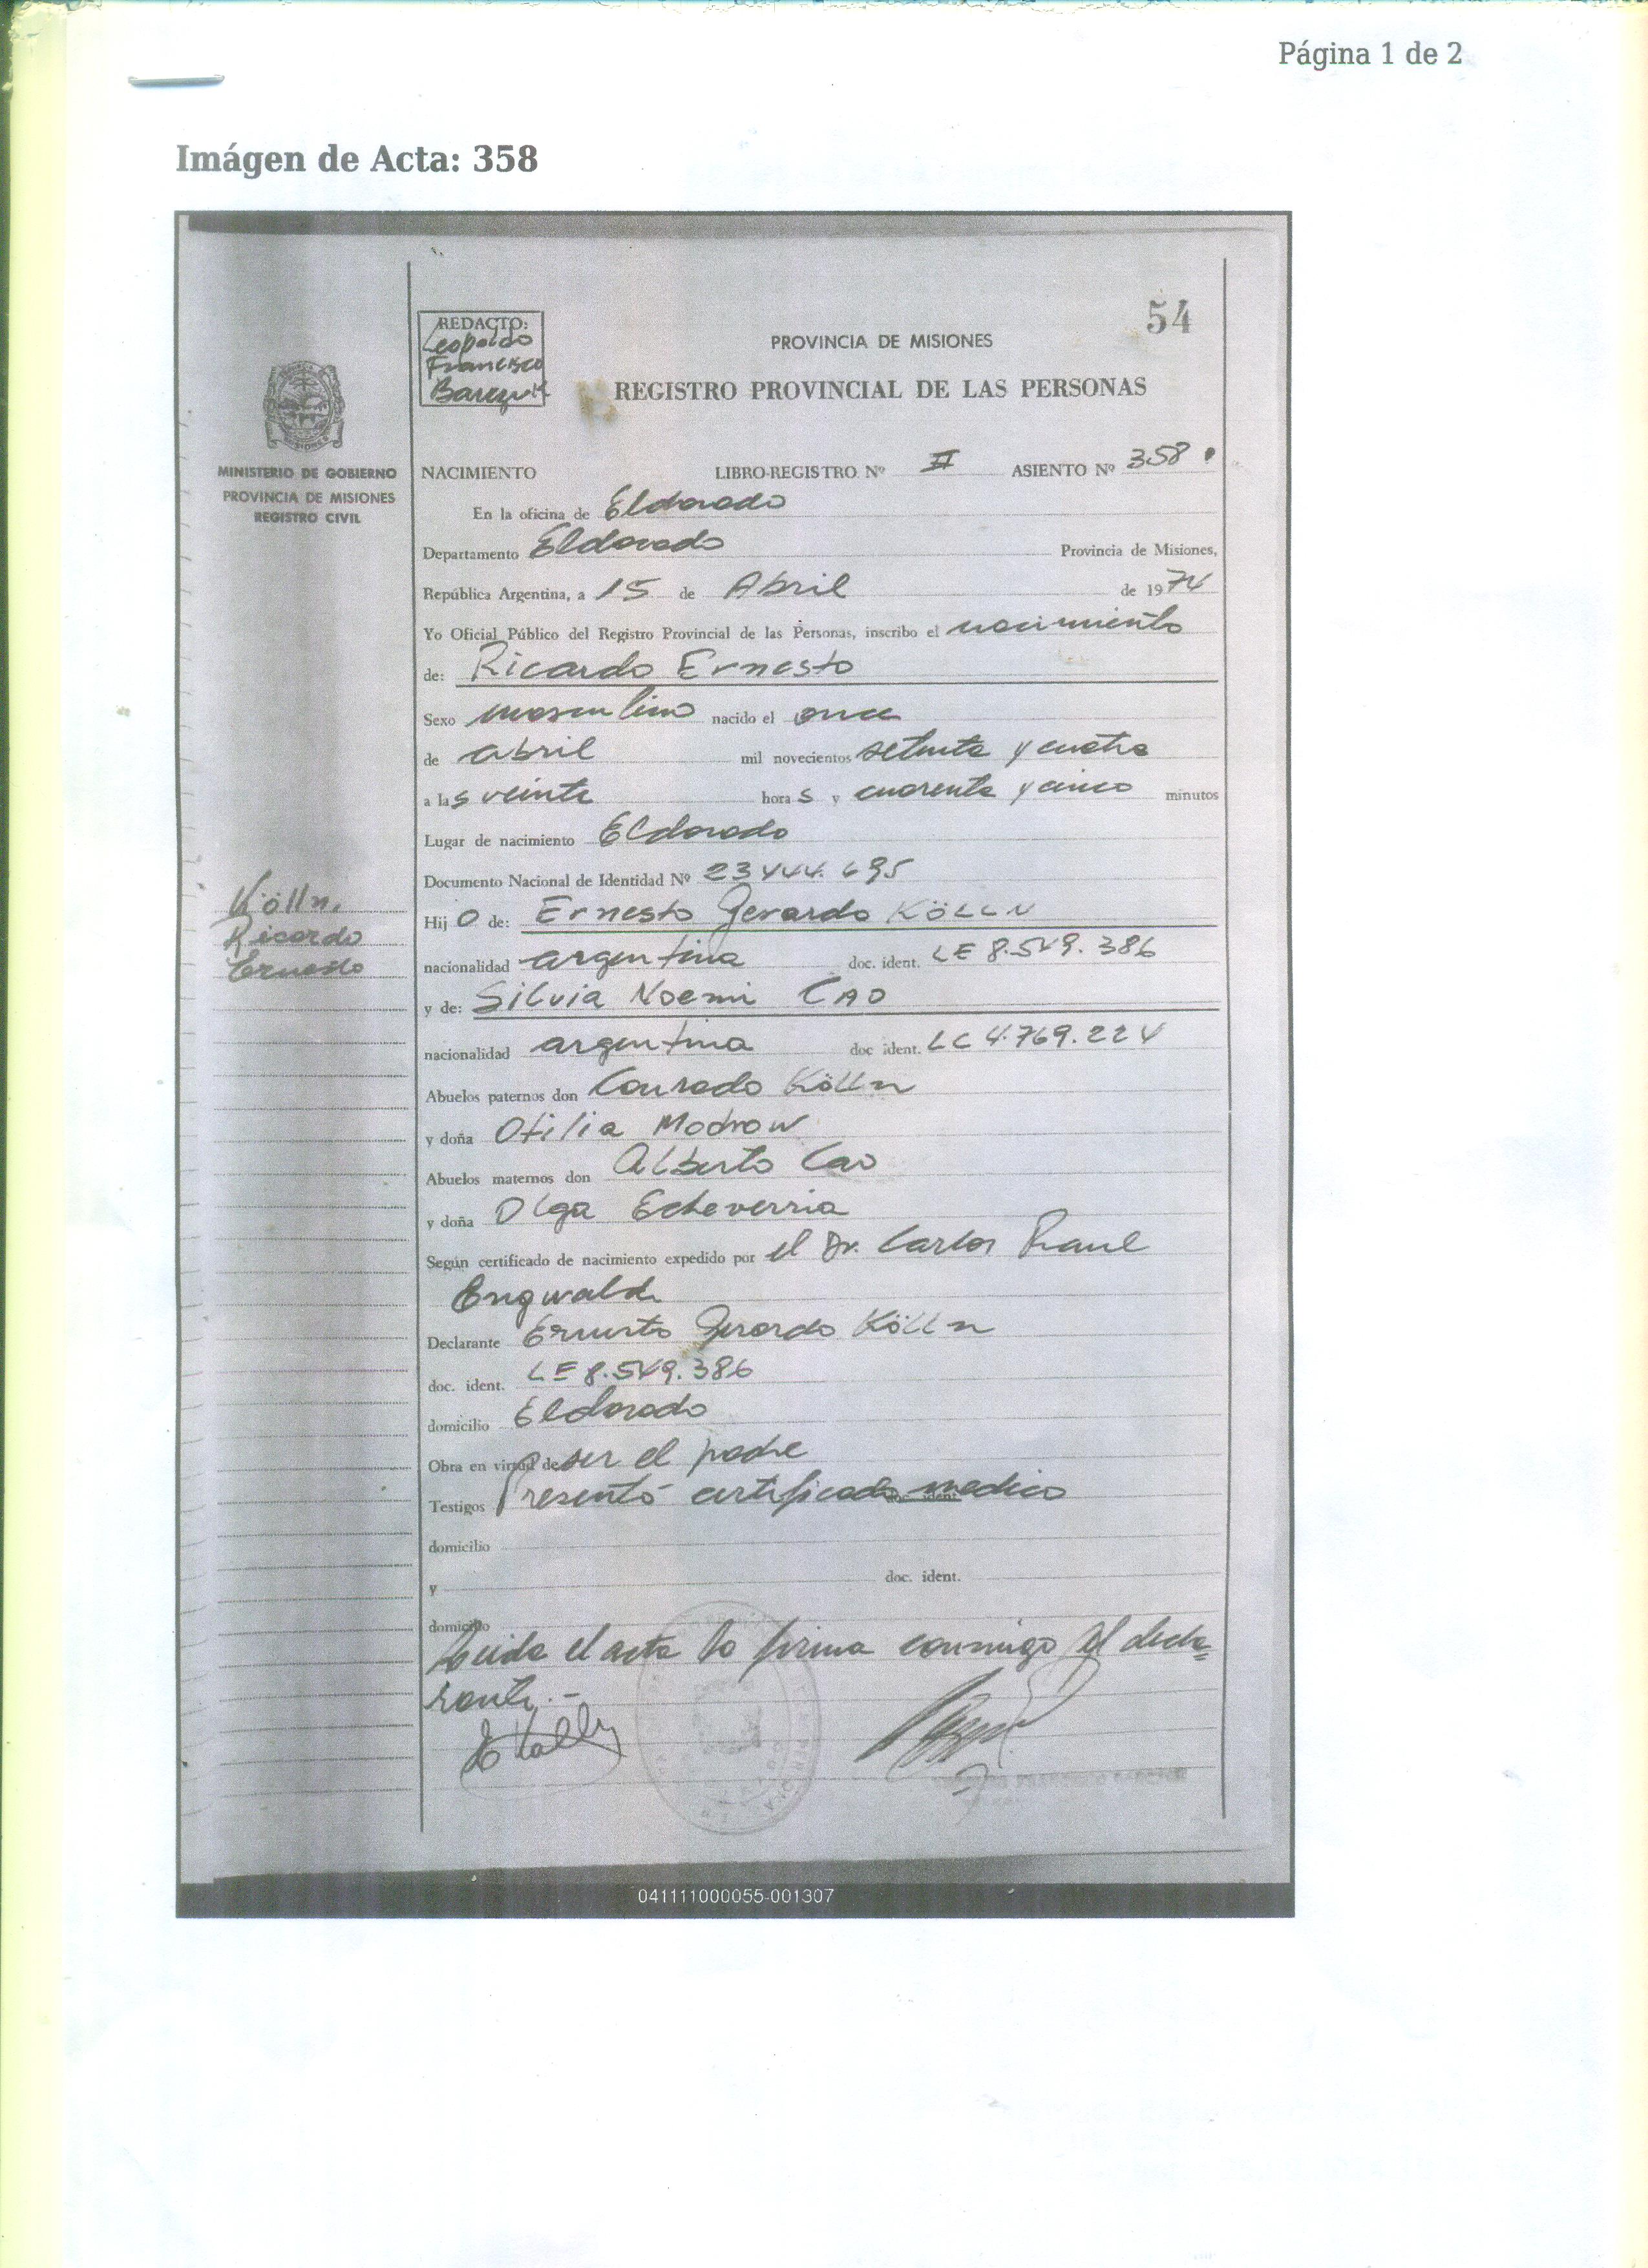 Página 1 de 2
Imágen de Acta: 358
54
REDACTO:
Leopoldo
Francisco
PROVINCIA DE MISIONES
REGISTRO PROVINCIAL DE LAS PERSONAS
MINISTERIO DE GOBIERNO
PROVINCIA DE MISIONES
REGISTRO CIVIL
NACIMIENTO LIBRO-REGISTRO Nº II ASIENTO Nº 358
En la oficina de Eldorado
Departamento Eldorado Provincia de Misiones,
República Argentina, a 15 de Abril de 1974
Yo Oficial Público del Registro Provincial de las Personas, inscribo el nacimiento
de: Ricardo Ernesto
Sexo masculino nacido el once
de abril mil novecientos setenta y cuatro
a las veinte horas y cuarenta y cinco minutos
Lugar de nacimiento Eldorado
Documento Nacional de Identidad Nº 23444.695
Kölln,
Ricardo
Ernesto
Hijo de: Ernesto Gerardo KÖLLN
nacionalidad argentina doc. ident. LE 8.549.386
y de: Silvia Noemi CAO
nacionalidad argentina doc ident. LC 4.769.224
Abuelos paternos don Conrado Kölln
y doña Otilia Modrow
Abuelos maternos don Alberto Cao
y doña Olga Echeverria
Según certificado de nacimiento expedido por el Dr. Carlos Raul
Engwald
Declarante Ernesto Gerardo Kölln
doc. ident. LE 8.549.386
domicilio Eldorado
Obra en virtud de ser el padre
Testigos Presentó certificado medico doc. ident.
domicilio
y doc. ident.
domicilio
Leida el acta la firma conmigo el decla=
rante.-
041111000055-001307